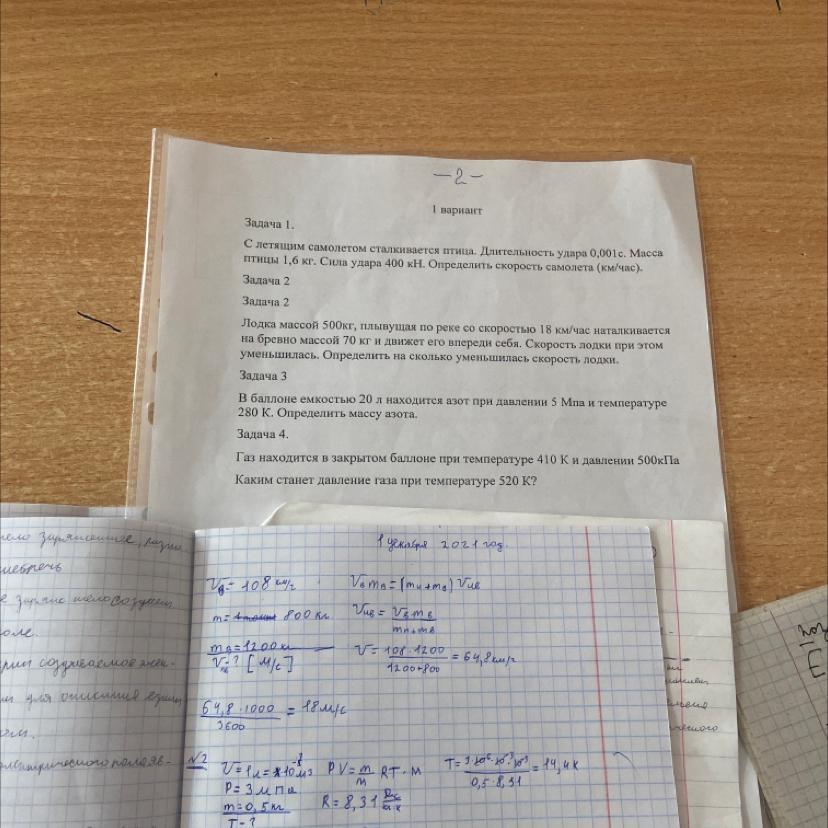 -2-
1 вариант
Задача 1.
С летящим самолетом сталкивается птица. Длительность удара 0,001с. Масса
птицы 1,6 кг. Сила удара 400 кН. Определить скорость самолета (км/час).
Задача 2
Задача 2
Лодка массой 500кг, плывущая по реке со скоростью 18 км/час наталкивается
на бревно массой 70 кг и движет его впереди себя. Скорость лодки при этом
уменьшилась. Определить на сколько уменьшилась скорость лодки.
Задача 3
В баллоне емкостью 20 л находится азот при давлении 5 Мпа и температуре
280 К. Определить массу азота.
Задача 4.
Газ находится в закрытом баллоне при температуре 410 К и давлении 500кПа
Каким станет давление газа при температуре 520 К?
1 декабря 2021 год.
Vв = 108 км/г Vв mв = (mн + mв) Vнв
m = 800 кг Vнв = Vв mв / mн + mв
mв = 1200 кг
V = ? [м/с] V = 108 · 1200 / 1200 + 800 = 64,8 км/г
64,8 · 1000 / 3600 = 18 м/с
№2
V = 1л = 10⁻³ м³ PV = m/м RT · М T = 3·10⁶ · 10⁻³ / 0,5 · 8,31 = 14,4 К
P = 3 МПа
m = 0,5 кг R = 8,31
T - ?